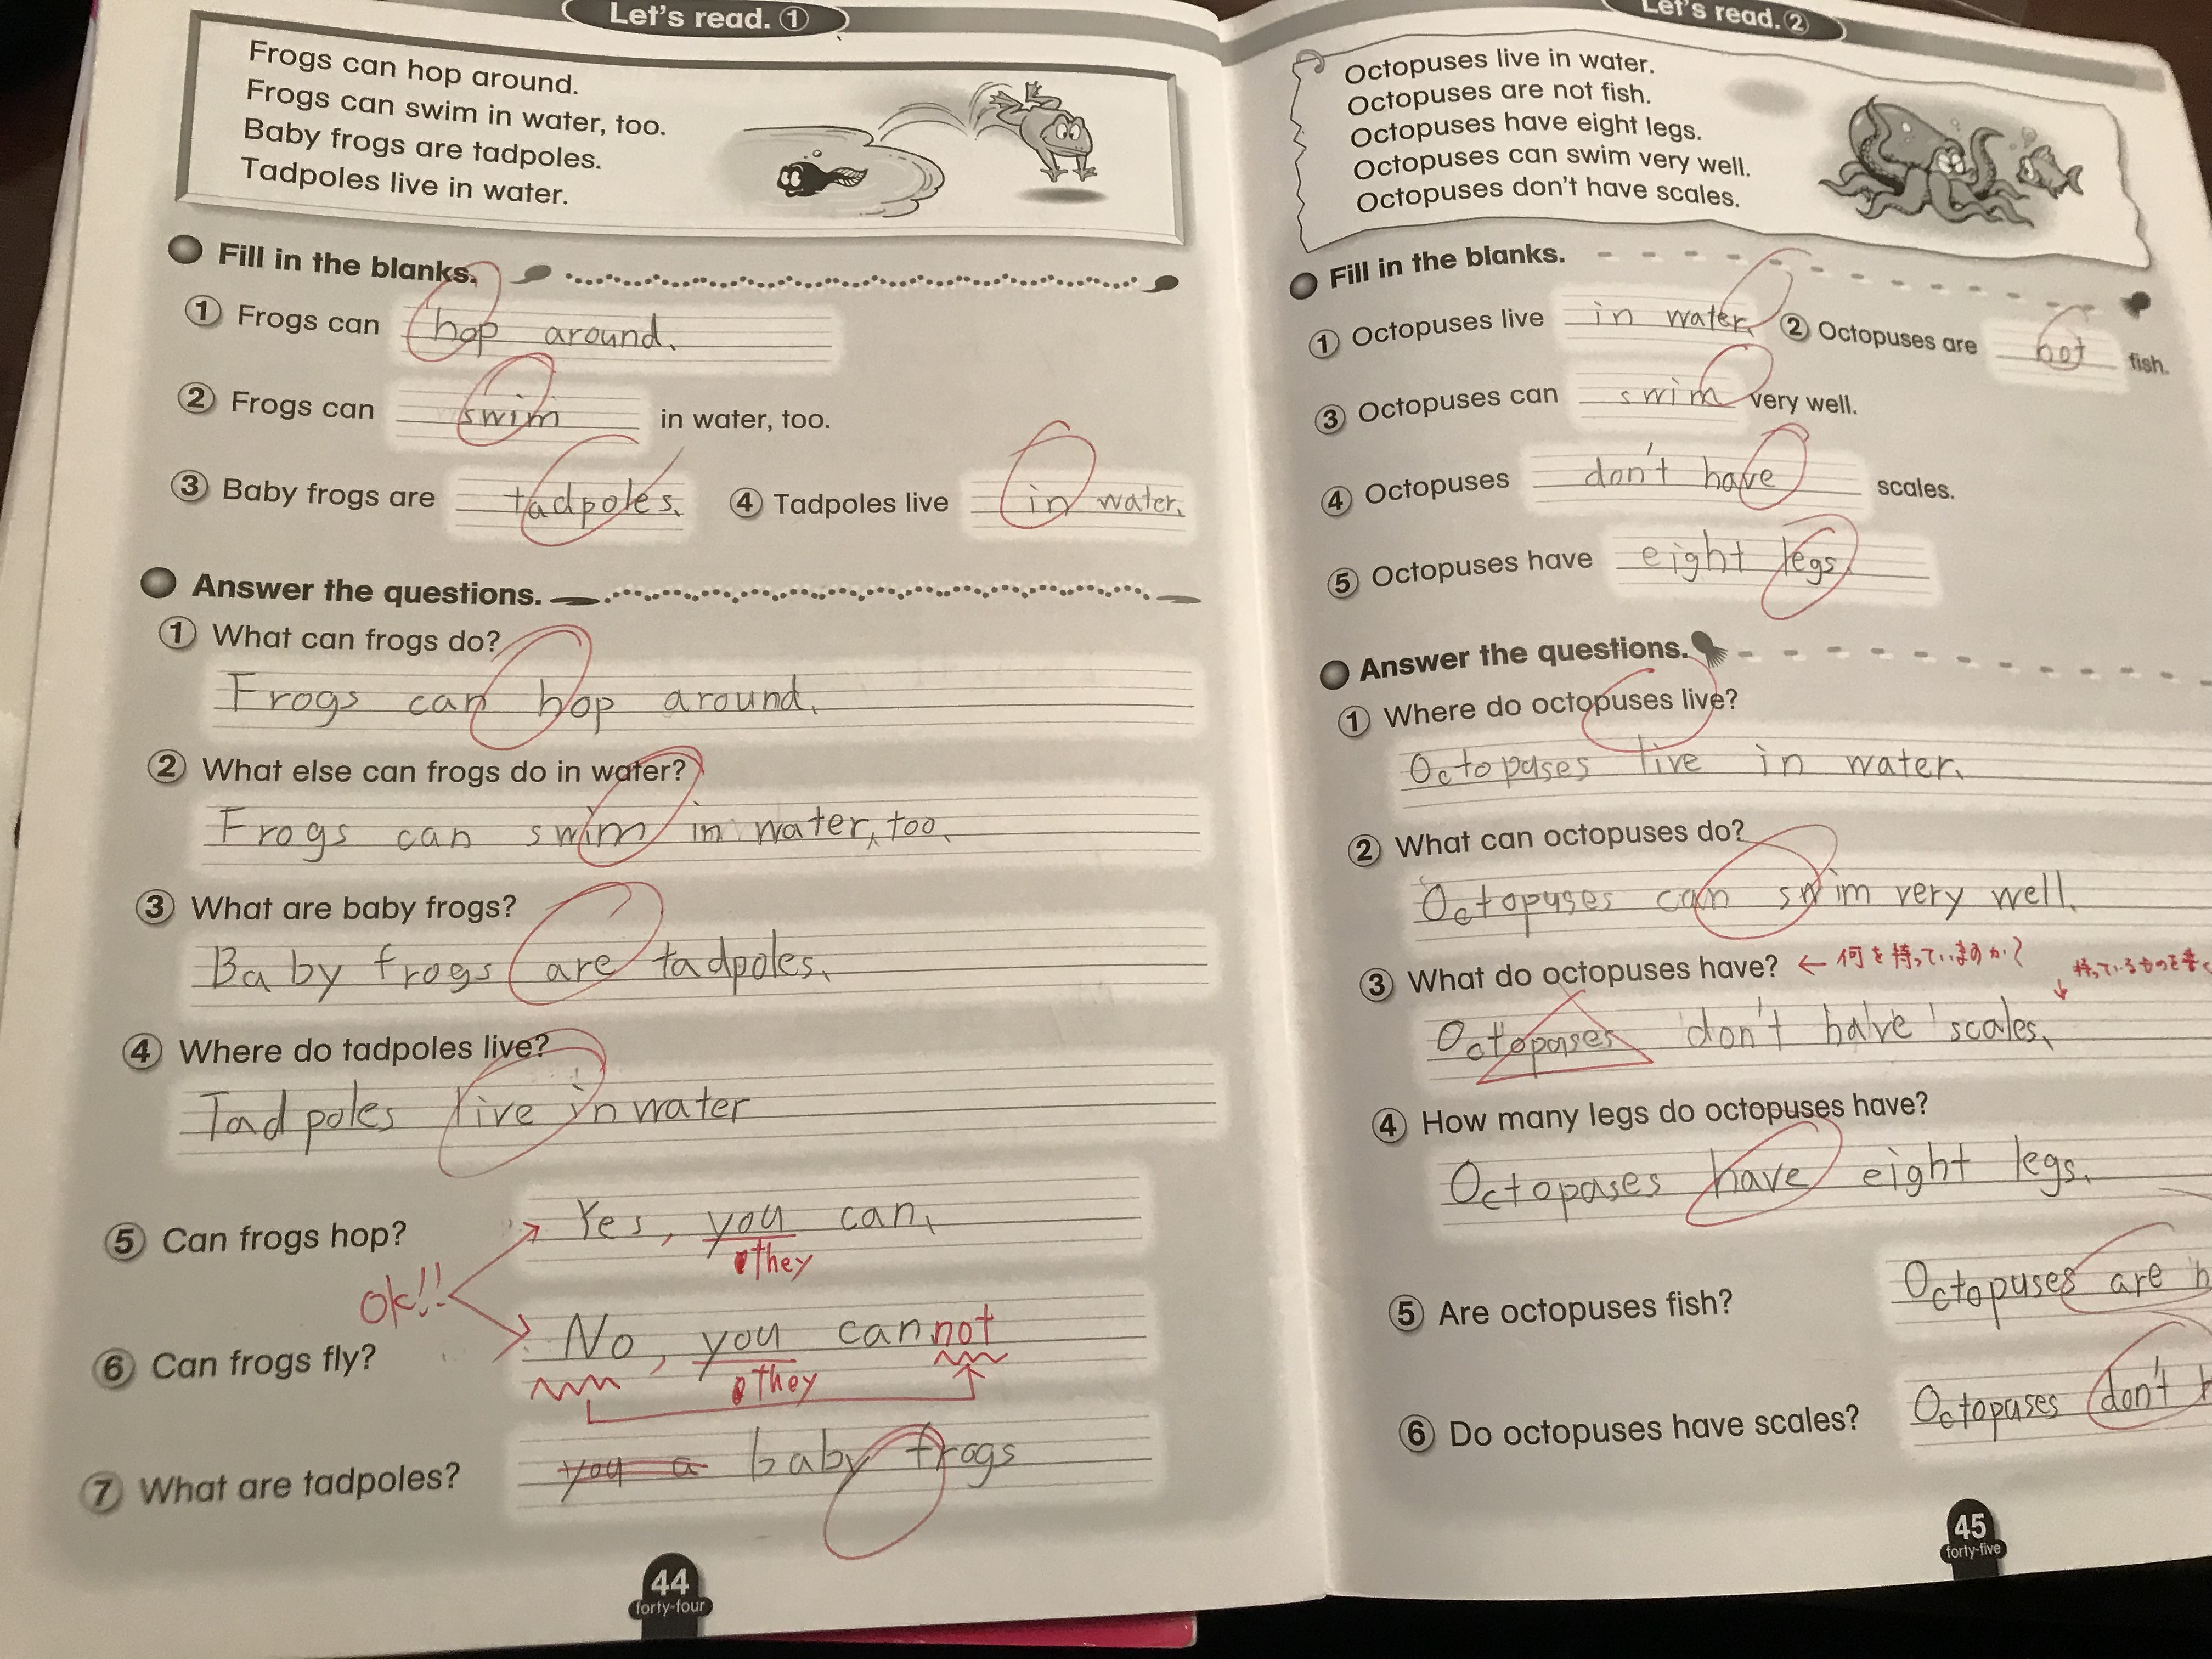 Let's read. ①
Frogs can hop around.
Frogs can swim in water, too.
Baby frogs are tadpoles.
Tadpoles live in water.
Fill in the blanks.
① Frogs can hop around.
② Frogs can swim in water, too.
③ Baby frogs are tadpoles. ④ Tadpoles live in water.
Answer the questions.
① What can frogs do?
Frogs can hop around.
② What else can frogs do in water?
Frogs can swim in water, too.
③ What are baby frogs?
Baby frogs are tadpoles.
④ Where do tadpoles live?
Tadpoles live in water
⑤ Can frogs hop? Yes, you can.
they
OK!!
⑥ Can frogs fly? No, you cannot
they
⑦ What are tadpoles? you a baby frogs
44
forty-four
Let's read. ②
Octopuses live in water.
Octopuses are not fish.
Octopuses have eight legs.
Octopuses can swim very well.
Octopuses don't have scales.
Fill in the blanks.
① Octopuses live in water. ② Octopuses are not fish.
③ Octopuses can swim very well.
④ Octopuses don't have scales.
⑤ Octopuses have eight legs.
Answer the questions.
① Where do octopuses live?
Octopuses live in water.
② What can octopuses do?
Octopuses can swim very well.
③ What do octopuses have? ← 何を持っていますのか?
持っているものを書く
Octopases don't have scales.
④ How many legs do octopuses have?
Octopases have eight legs.
⑤ Are octopuses fish? Octopuses are
⑥ Do octopuses have scales? Octopases don't
45
forty-five